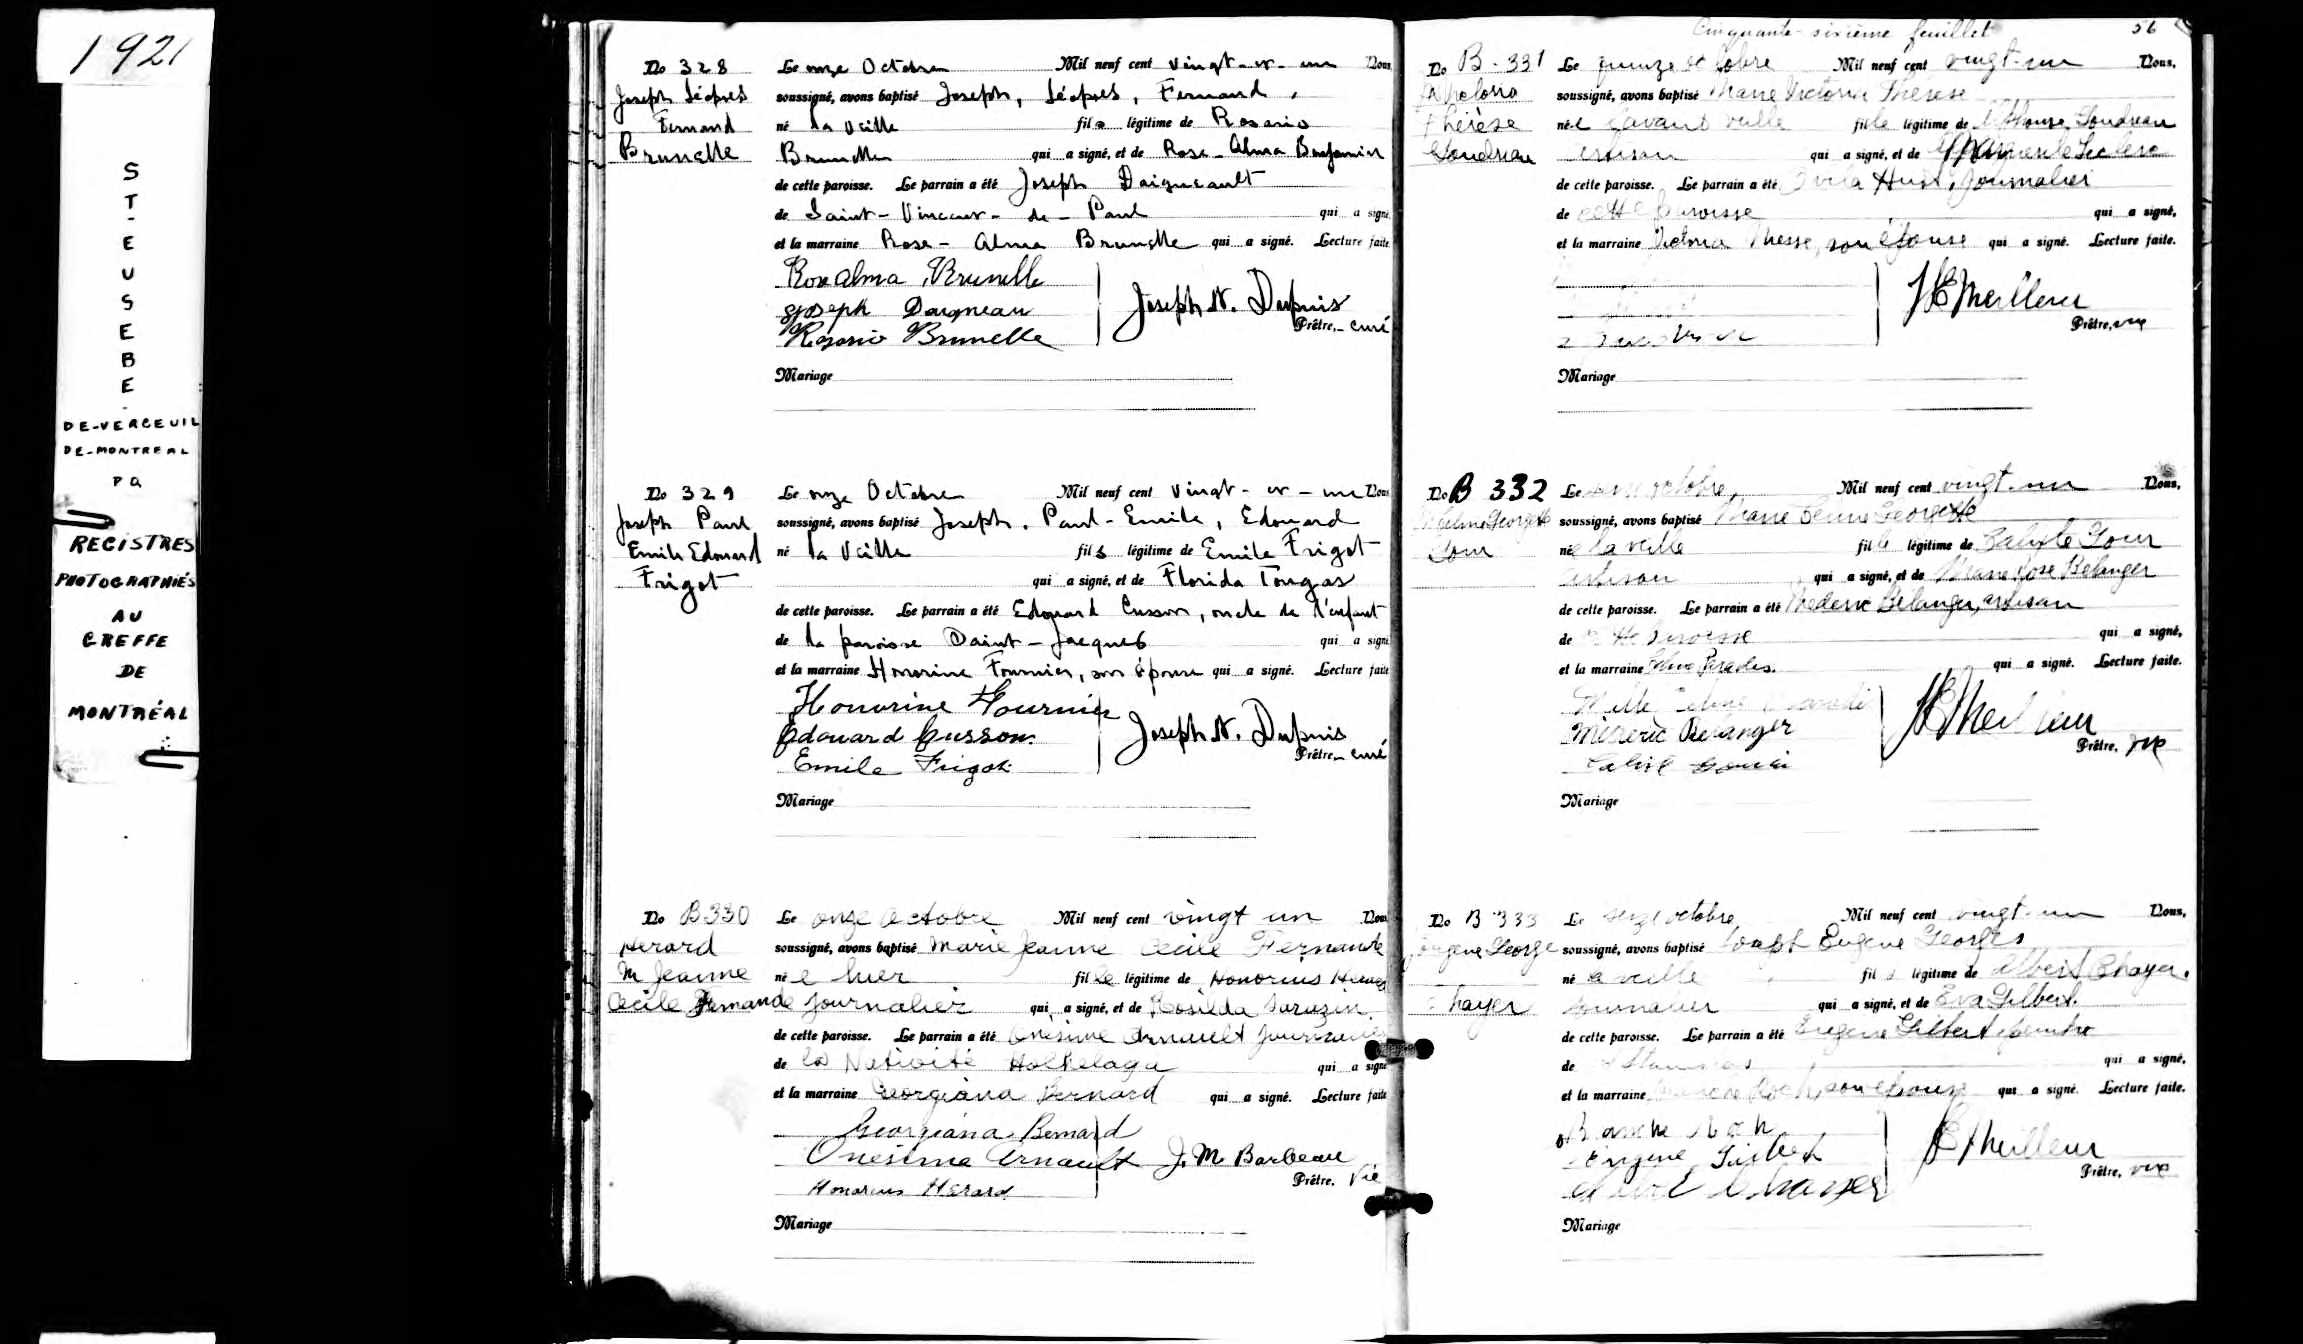 1921
ST-EUSEBE
DE-VERCEUIL
DE-MONTREAL
PQ
REGISTRES
PHOTOGRAPHIÉS
AU
GREFFE
DE
MONTRÉAL
No 328
Joseph
Fernand
Brunelle
Le onze Octobre Mil neuf cent vingt-et-un Nous
soussigné, avons baptisé Joseph, Fernand,
né la veille fils légitime de Rosario
Brunelle qui a signé, et de Rose-Alma Benjamin
de cette paroisse. Le parrain a été Joseph Daigneault
de Saint-Vincent-de-Paul qui a signé
et la marraine Rose-Alma Brunelle qui a signé. Lecture faite
Rosealma Brunelle
Joseph Daigneau
Rosario Brunelle
Joseph N. Dupuis
Prêtre, curé
Mariage
No 329
Joseph Paul
Emile Edouard
Frigot
Le onze Octobre Mil neuf cent vingt-et-un Nous
soussigné, avons baptisé Joseph, Paul-Emile, Edouard
né la veille fils légitime de Emile Frigot
qui a signé, et de Florida Tougas
de cette paroisse. Le parrain a été Edouard Cusson, oncle de l'enfant
de la paroisse Saint-Jacques qui a signé
et la marraine Honorine Fournier, son épouse qui a signé. Lecture faite
Honorine Fournier
Edouard Cusson
Emile Frigot
Joseph N. Dupuis
Prêtre, curé
Mariage
No B330
Herard
M Jeanne
Cecile Fernande
Le onze octobre Mil neuf cent vingt un Nous
soussigné, avons baptisé Marie Jeanne Cecile Fernande
née hier fille légitime de Honorius Herard
journalier qui a signé, et de Rosilda Sarazin
de cette paroisse. Le parrain a été Onesime Arnault journalier
de la Nativité Hochelaga qui a signé
et la marraine Georgiana Bernard qui a signé. Lecture faite
Georgiana Bernard
Onesime Arnault
Honorius Herard
J. M Barbeau
Prêtre. Vic
Mariage
Cinquante-sixième feuillet 56
No B-331
Thérèse
Le quinze octobre Mil neuf cent vingt-un Nous,
soussigné, avons baptisé Marie Victoria Thérèse
née l'avant veille fille légitime de Alphonse
artisan qui a signé, et de Marguerite Leclerc
de cette paroisse. Le parrain a été journalier
de cette paroisse qui a signé,
et la marraine Victoria son épouse qui a signé. Lecture faite.
Meilleur
Prêtre, vic
Mariage
No B 332
Le octobre, Mil neuf cent vingt-un Nous,
soussigné, avons baptisé Marie Georgette
née la veille fille légitime de
artisan qui a signé, et de Marie Rose Bélanger
de cette paroisse. Le parrain a été Bélanger, artisan
de cette paroisse qui a signé,
et la marraine Paradis. qui a signé. Lecture faite.
Belanger
Meilleur
Prêtre, vic
Mariage
No B 333
Eugène George
Chayer
Le seize octobre Mil neuf cent vingt-un Nous,
soussigné, avons baptisé Joseph Eugène Georges
né la veille fils légitime de Albert Chayer
journalier qui a signé, et de Eva Gilbert
de cette paroisse. Le parrain a été Eugène Gilbert, peintre
de qui a signé,
et la marraine son épouse qui a signé. Lecture faite.
Eugene
Chayer
Meilleur
Prêtre, vic
Mariage